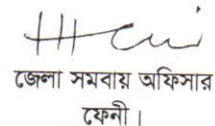 জেলা সমবায় অফিসার
ফেনী।